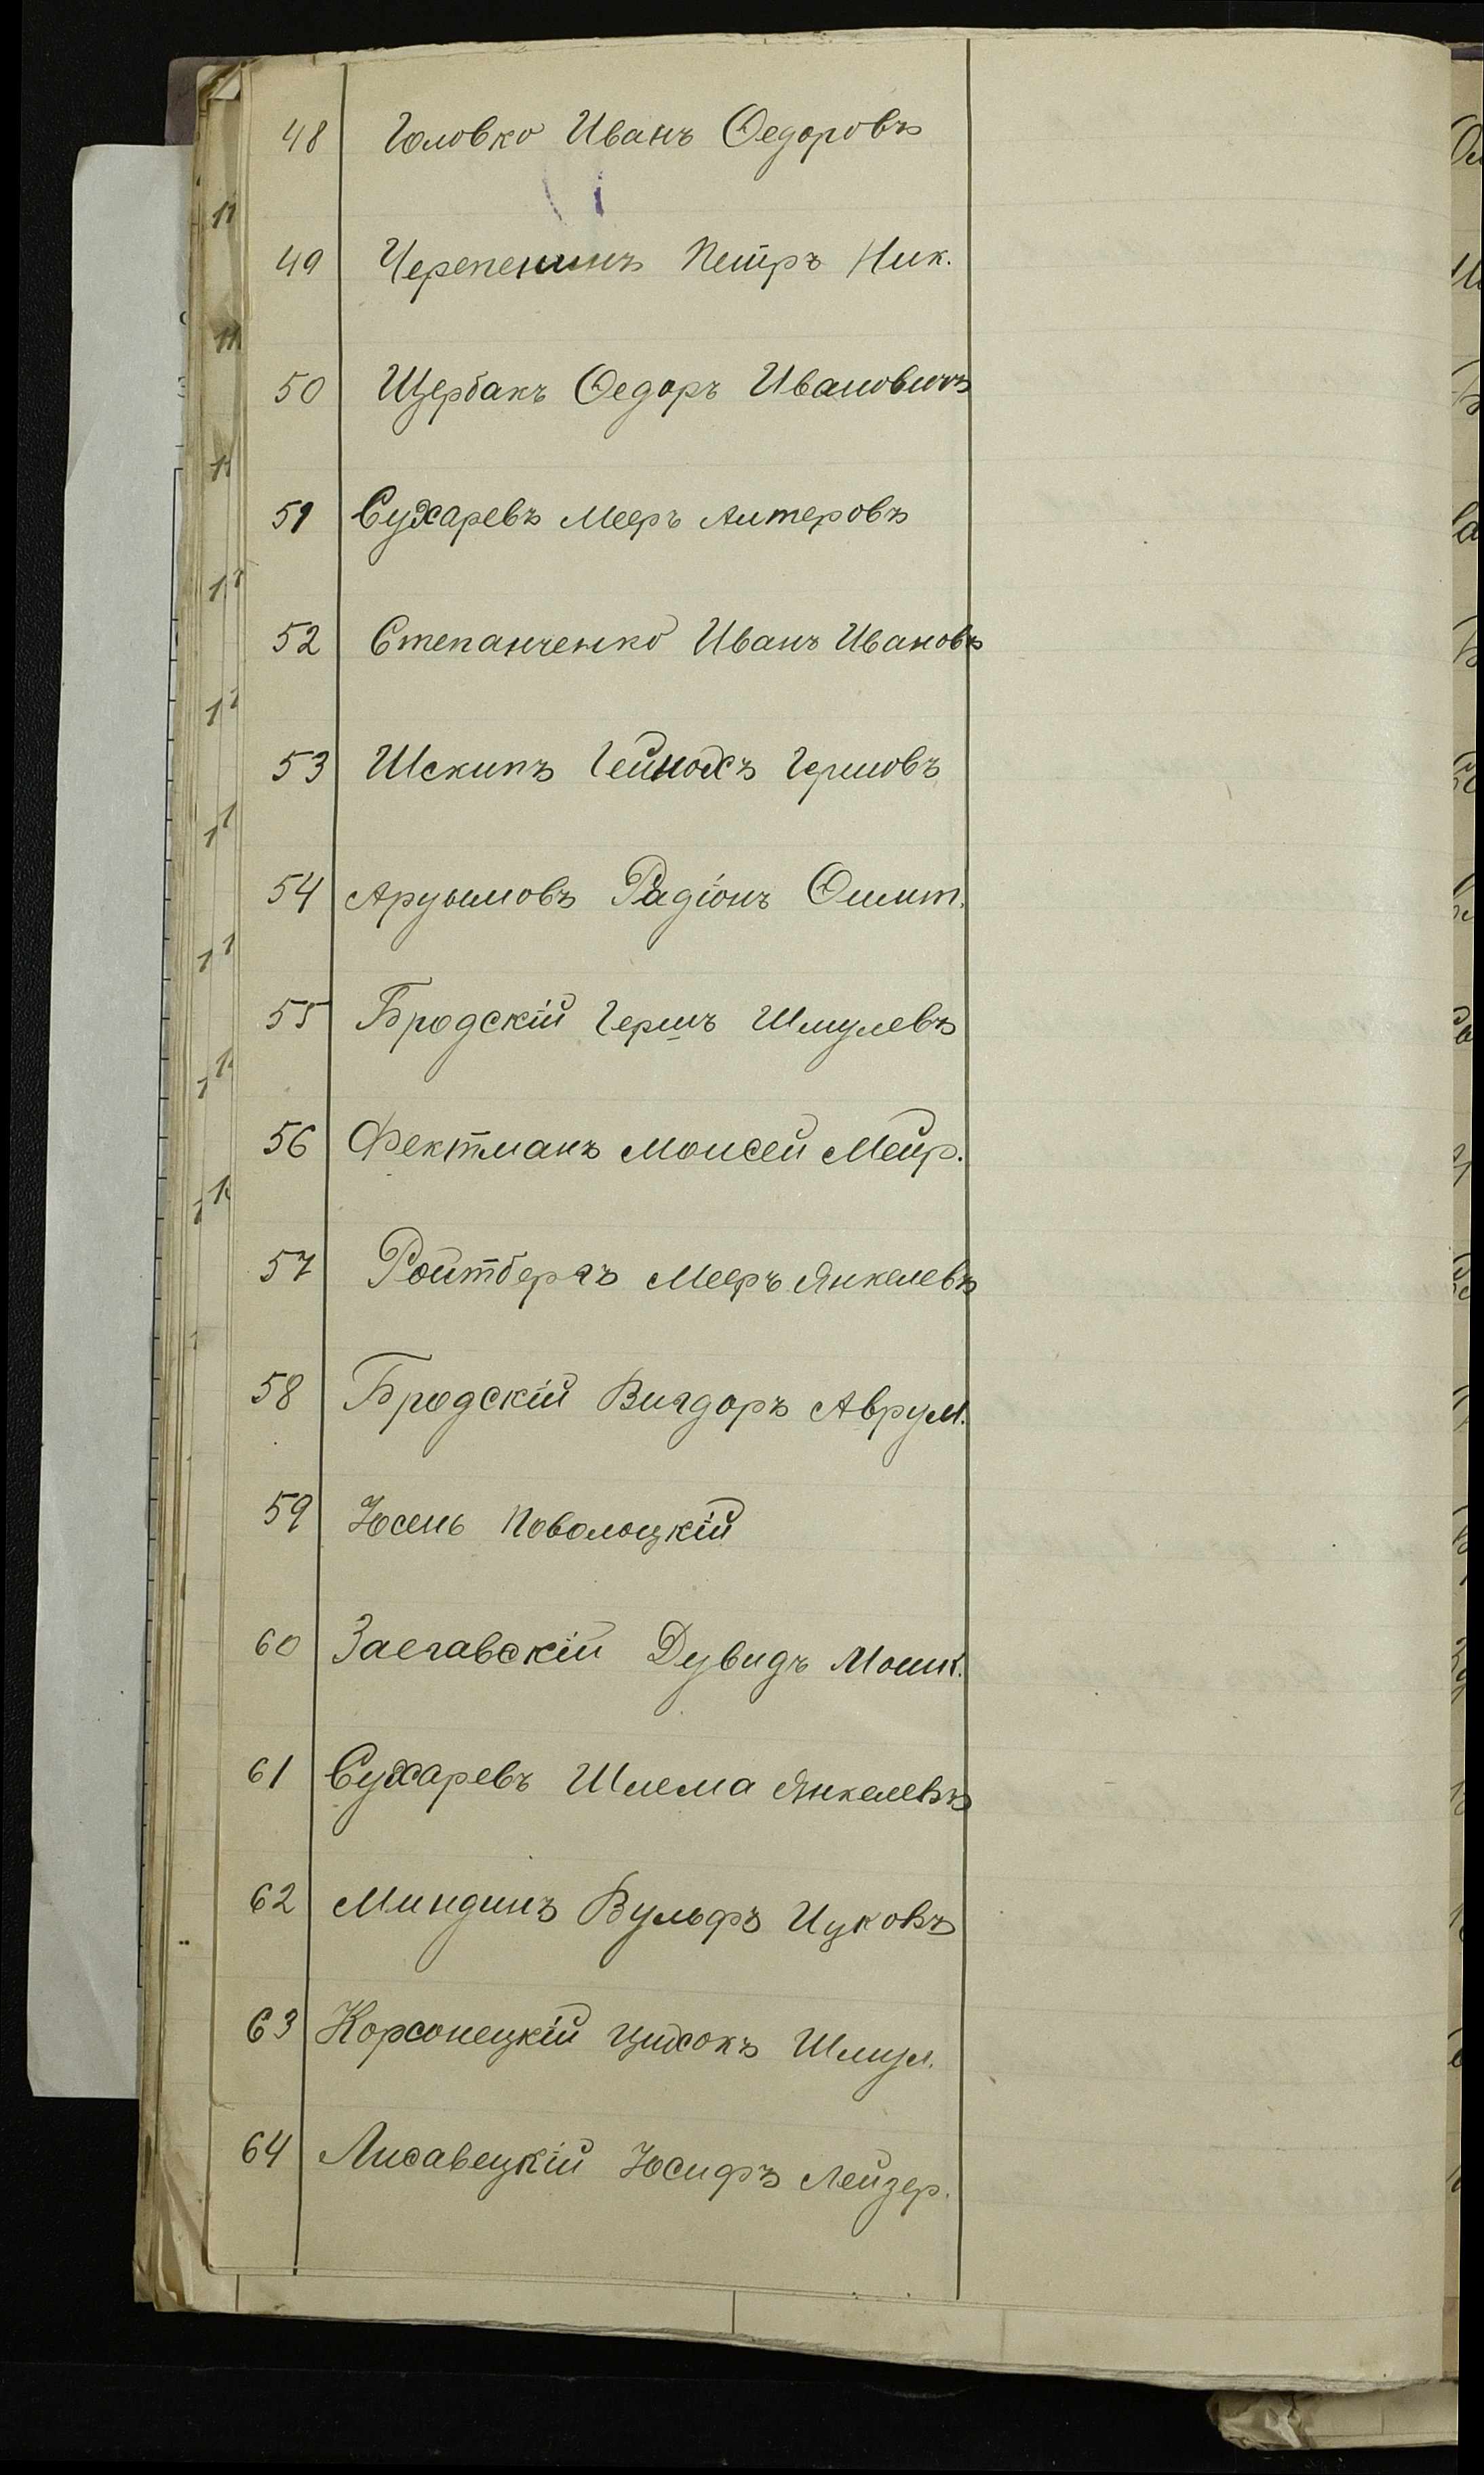 48 Головко Иванъ Ѳедоровъ
49 Черепенинъ Петръ Ник.
50 Щербакъ Ѳедоръ Ивановичъ
51 Сухаревъ Мееръ Алтеровъ
52 Степанченко Иванъ Ивановъ
53 Шскипъ Гейнохъ Гершовъ
54 Радіонъ
55 Бродскій Гершъ Шмулевъ
56 Фектманъ Моисей Мейр.
57 Ройтбергъ Мееръ Янкелевъ
58 Бродскій Вигдоръ Аврум.
59 Юсень Поволоцкій
60 Заславскій Дувидъ Мошк.
61 Сухаревъ Шлема Янкелевъ
62 Миндинъ Вульфъ Ицковъ
63 Корсонецкій Шмул.
64 Лисавецкій Юсифъ Лейзер.